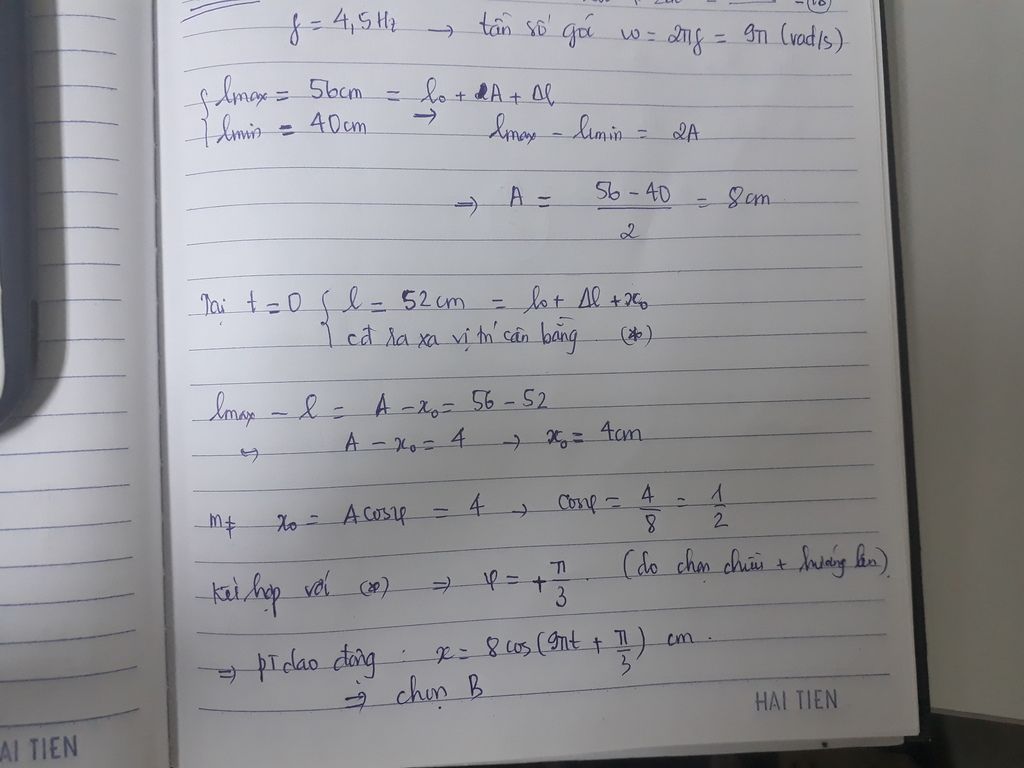 f = 4,5 Hz → tần số góc ω = 2πf = 9π (rad/s)
{ lmax = 56cm = l₀ + A + Δl
{ lmin = 40cm → lmax - lmin = 2A
⇒ A = (56 - 40)/2 = 8cm
Tại t = 0 { l = 52cm = l₀ + Δl + x₀
{ cđ ra xa vị trí cân bằng (*)
lmax - l = A - x₀ = 56 - 52
⇔ A - x₀ = 4 → x₀ = 4cm
m≠ x₀ = Acosφ = 4 → cosφ = 4/8 = 1/2
Kết hợp với (*) ⇒ φ = + π/3 . (do chọn chiều + hướng lên)
⇒ PT dao động : x = 8cos(9πt + π/3) cm .
⇒ chọn B
HAI TIEN
AI TIEN